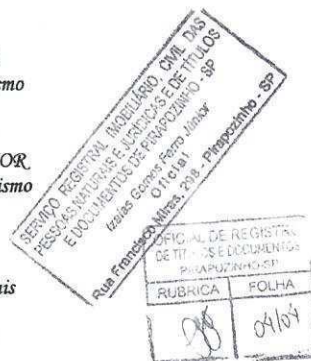 smo
OR
ismo
is
SERVIÇO REGISTRAL IMOBILIÁRIO, CIVIL DAS
PESSOAS NATURAIS E JURÍDICAS E DE TÍTULOS
E DOCUMENTOS DE PIRAPOZINHO - SP
Izaias Gomes Ferro Júnior
Oficial
Rua Francisco Mires, 298 - Pirapozinho - SP
OFICIAL DE REGISTRO
DE TÍTULOS E DOCUMENTOS
PIRAPOZINHO-SP
RUBRICA FOLHA
04/04